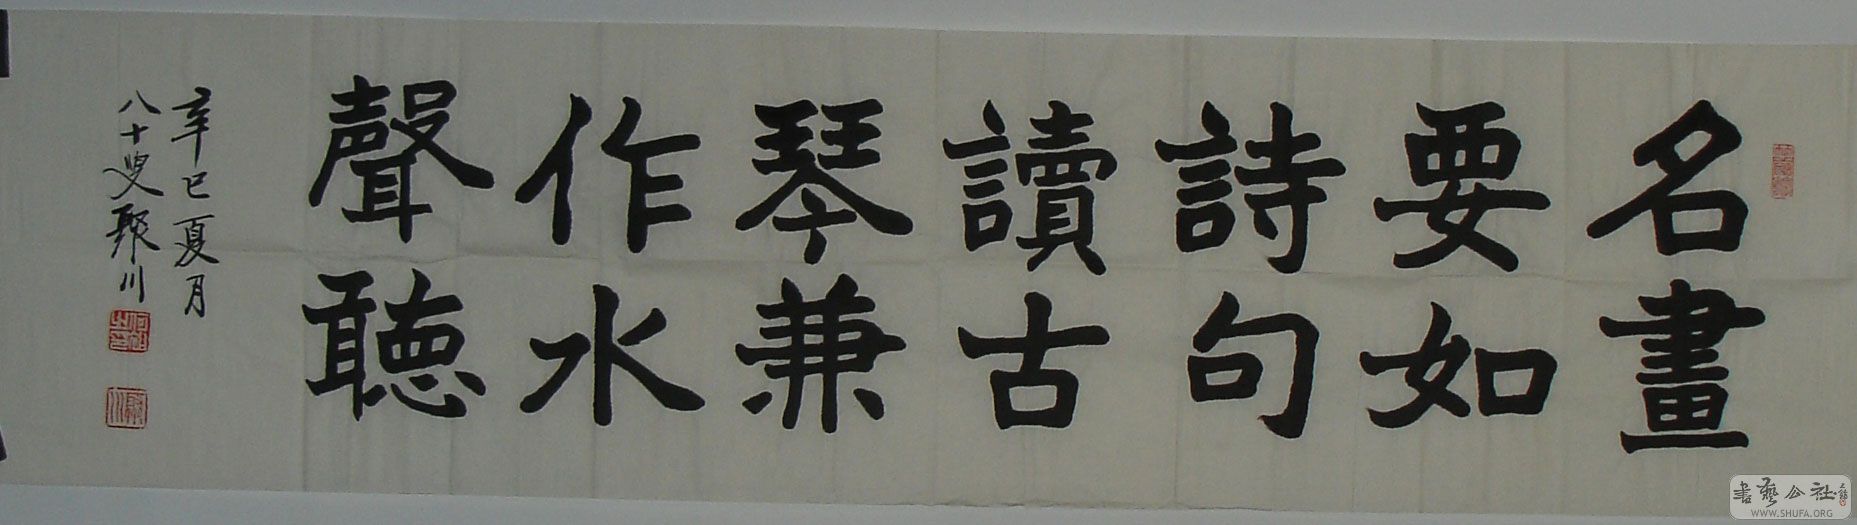 名畫
要如
詩句
讀古
琴兼
作水
聲聽
辛巳夏月
八十叟聚川
書藝公社
WWW.SHUFA.ORG